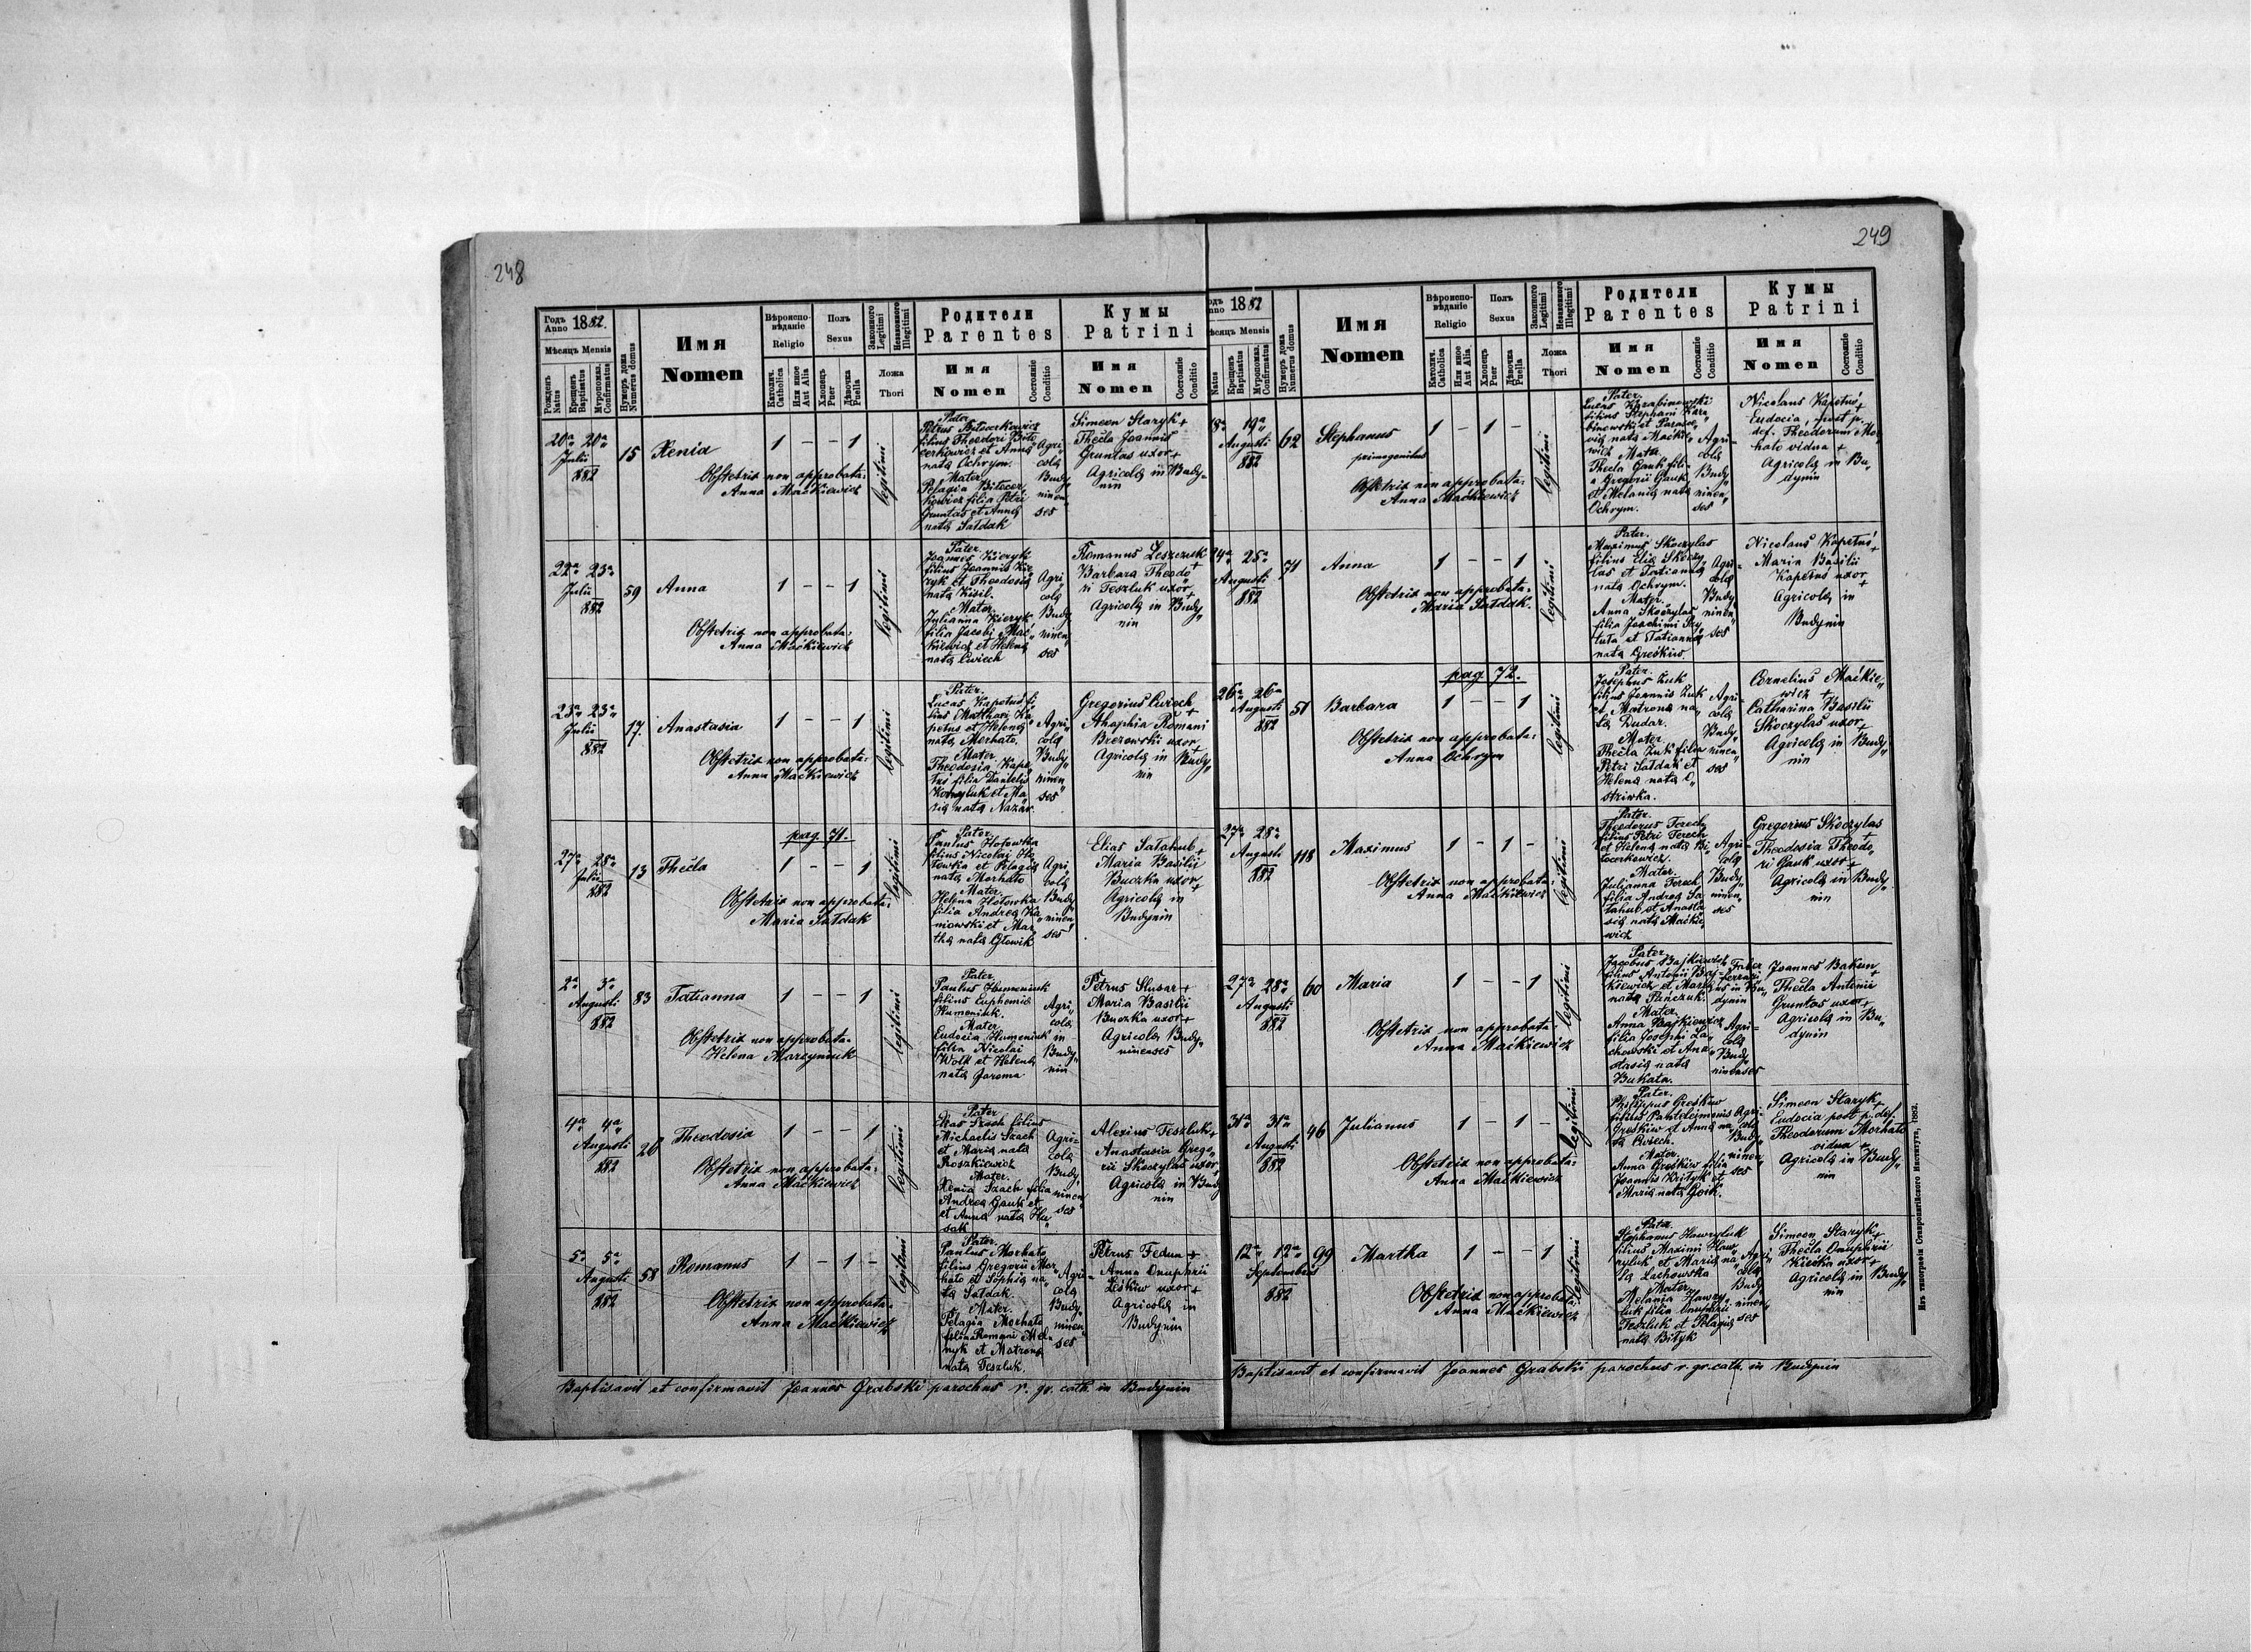 248
Годъ Anno 1882.
Мѣсяцъ Mensis
Рожденъ Natus
Крещенъ Baptisatus
Мѵропомаз. Confirmatus
Нумеръ дома Numerus domus
Имя Nomen
Вѣроисповѣданіе Religio
Католич. Catholica
Или иное Aut Alia
Полъ Sexus
Хлопець Puer
Дѣвочка Puella
Законного Legitimi
Незаконного Illegitimi
Ложа Thori
Родители Parentes
Имя Nomen
Состояніе Conditio
Кумы Patrini
Имя Nomen
Состояніе Conditio
20a 20a
Julii
882
15
Xenia
1 - - 1
legitimi
Obstetrix non approbata:
Anna Maćkiewicz
Pater.
Petrus Biłocerkowicz
filius Theodori Biło
cerkowicz et Anna
nata Ochrym.
Mater.
Pelagia Biłocer„
kowicz filia Petri
Gruntas et Anna
nata Sałdak
Agri„
cola
Budy„
ninen„
ses
Simeon Staryk +
Thecla Joannis
Gruntas uxor +
Agricola in Budy„
nin
22a 23a
Julii
882
59
Anna
1 - - 1
legitimi
Obstetrix non approbata:
Anna Maćkiewicz
Pater.
Joannes Kieryk
filius Joannis Kie„
ryk et Theodosia
nata Kisil.
Mater.
Julianna Kieryk
filia Jacobi Mać„
kiewicz et Helena
nata Cwiech
Agri„
cola
Budy„
ninen„
ses
Romanus Leszczuk +
Barbara Theodo„
ri Teszluk uxor +
Agricola in Budy„
nin
23a 23a
Julii
882
17.
Anastasia
1 - - 1
legitimi
Obstetrix non approbata:
Anna Maćkiewicz
Pater.
Lucas Kapetus fi
lius Matthaei Ka
petus et Helena
nata Morhało.
Mater
Theodosia Kape„
tus filia Danielis
et Ma„
ria nata Nazar.
Agri„
cola
Budy„
ninen„
ses
Gregorius Cwiech +
Ahaphia Romani
Brezowski uxor +
Agricola in Budy„
nin
pag. 71.
27a 28a
Julii
882
13
Thecla
1 - - 1
legitimi
Obstetrix non approbata:
Maria Sałdak
Pater.
Paulus Hołowka
filius Nicolai Ho
łowka et Pelagia
nata Morhało
Mater.
Helena Hołowka
filia Andrea Ka„
niowski et Mar„
tha nata Głowik
Agri„
cola
Budy„
ninen„
ses
Elias Sałahub +
Maria Basilii
Buczka uxor +
Agricola in
Budynin
2a 3a
Augusti
882
83
Tatianna
1 - - 1
legitimi
Obstetrix non approbata
Helena Marcyniuk
Pater.
Paulus Humeniuk
filius Euphemia
Humeniuk.
Mater
Eudocia Humeniuk
filia Nicolai
Wolk et Helena
nata Jarema
Agri„
cola
in
Budy„
nin
Petrus Slusar +
Maria Basilii
Buczka uxor +
Agricola Budy„
ninenses
4a 4a
Augusti
882
26
Theodosia
1 - - 1
legitimi
Obstetrix non approbata:
Anna Maćkiewicz
Pater
Elias Szach filius
Michaelis Szach
et Maria nata
Roszkiewicz
Mater.
Xenia Szach filia
Andrea Gauk et
et Anna nata Hu„
sak
Agri„
cola
Budy„
ninen„
ses
Alexius Teszluk +
Anastasia Grego„
rii Skoczylas uxor +
Agricola in Budy
nin
5a 5a
Augusti
882
58
Romanus
1 - 1 -
legitimi
Obstetrix non approbata
Anna Maćkiewicz
Pater.
Paulus Morhało
filius Gregorii Mor„
hało et Sophia na„
ta Sałdak.
Mater.
Pelagia Morhało
filia Romani Mel„
nyk et Matrona
nata Teszluk.
Agri„
cola
Budy„
ninen„
ses
Petrus Fedun +
Anna Onuphrii
Leśkiw uxor +
Agricola in
Budynin
Baptisavit et confirmavit Joannes Grabski parochus r. gr. cath. in Budynin
249
Годъ Anno 1882
Мѣсяцъ Mensis
Natus
Крещенъ Baptisatus
Мѵропомаз. Confirmatus
Нумеръ дома Numerus domus
Имя Nomen
Вѣроисповѣданіе Religio
Католич. Catholica
Или иное Aut Alia
Полъ Sexus
Хлопець Puer
Дѣвочка Puella
Законного Legitimi
Незаконного Illegitimi
Ложа Thori
Родители Parentes
Имя Nomen
Состояніе Conditio
Кумы Patrini
Имя Nomen
Состояніе Conditio
18a 19a
Augusti
882
62
Stephanus
primogenitus
1 - 1 -
legitimi
Obstetrix non approbata:
Anna Maćkiewicz
Pater.
Lucas Karabinowski
filius Stephani Kara„
binowski et Parasce„
via nata Maćkie„
wicz Mater
Thecla Gauk fili„
a Gregorii Gauk
et Melania nata
Ochrym.
Agri„
cola
Budy„
ninen„
ses
Nicolaus Kapetus +
Eudocia, post p.
def. Theodorum Mor„
hało vidua +
Agricola in Bu„
dynin
24a 25a
Augusti
882
71
Anna
1 - - 1
legitimi
Obstetrix non approbata:
Maria Sałdak.
Pater.
Maximus Skoczylas
filius Elia Skoczy„
las et Tatianna
nata Ochrym.
Mater.
Anna Skoczylas
filia Joachimi Szy„
tuła et Tatianna
nata Greśkiw.
Agri„
cola
Budy„
ninen„
ses
Nicolaus Kapetus +
Maria Basilii
Kapetus uxor +
Agricola in
Budynin
pag. 72.
26a 26a
Augusti
882
51
Barbara
1 - - 1
legitimi
Obstetrix non approbata:
Anna Ochrym
Pater.
Josephus Zuk
filius Joannis Zuk
et Matrona na„
ta Dudar.
Mater.
Thecla Zuk filia
Petri Sałdak et
Helena nata O„
striwka.
Agri„
cola
Budy„
ninen„
ses
Cornelius Maćkie„
wicz +
Catharina Basilii
Skoczylas uxor +
Agricola in Budy„
nin
27a 28a
Augusti
882
118
Maximus
1 - 1 -
legitimi
Obstetrix non approbata:
Anna Maćkiewicz
Pater.
Theodorus Terech
filius Petri Terech
et Helena nata Bi„
łocerkowicz.
Mater.
Julianna Terech
filia Andrea Sa„
łahub et Anasta„
sia nata Maćkie„
wicz
Agri„
cola
Budy„
ninen„
ses
Gregorius Skoczylas +
Theodosia Theodo„
ri Gauk uxor +
Agricola in Budy„
nin
27a 28a
Augusti
882
60
Maria
1 - - 1
legitimi
Obstetrix non approbata
Anna Maćkiewicz
Pater.
Jacobus Bajkiewicz
filius Antonii Baj„
kiewicz et Maria
nata Panczuk.
Mater
Anna Bajkiewicz
filia Josephi La„
chowski et Ana„
stasia nata
Bukata.
Faber
ferrari„
us in Bu„
dynin
Agri„
cola
Budy„
ninenses
Joannes Bakun +
Thecla Antonii
Gruntas uxor +
Agricola in Bu„
dynin
31a 31a
Augusti
882
46
Julianus
1 - 1 -
legitimi
Obstetrix non approbata:
Anna Maćkiewicz
Pater.
Philippus Greśkiw
filius Panteleimonis
Greśkiw et Anna na„
ta Cwiech.
Mater.
Anna Greśkiw filia
Joannis Krityk et
Maria nata Goik.
Agri„
cola
Budy„
ninen„
ses
Simeon Staryk +
Eudocia post p. def.
Theodorum Morhało
vidua +
Agricola in Budy„
nin
12a 12a
Septembris
882
99
Martha
1 - - 1
legitimi
Obstetrix non approbata:
Anna Maćkiewicz
Pater.
Stephanus Hawryluk
filius Maximi Haw„
ryluk et Maria na„
ta Lachowska
Mater.
Melania Hawry„
luk filia Onuphrii
Teszluk et Pelagia
nata Bityk
Agri„
cola
Budy„
ninen„
ses
Simeon Staryk +
Thecla Onuphrii
Kiećka uxor +
Agricola in Budy„
nin
Baptisavit et confirmavit Joannes Grabski parochus r. gr. cath. in Budynin
Изъ типографіи Ставропигійского Института, 1882.